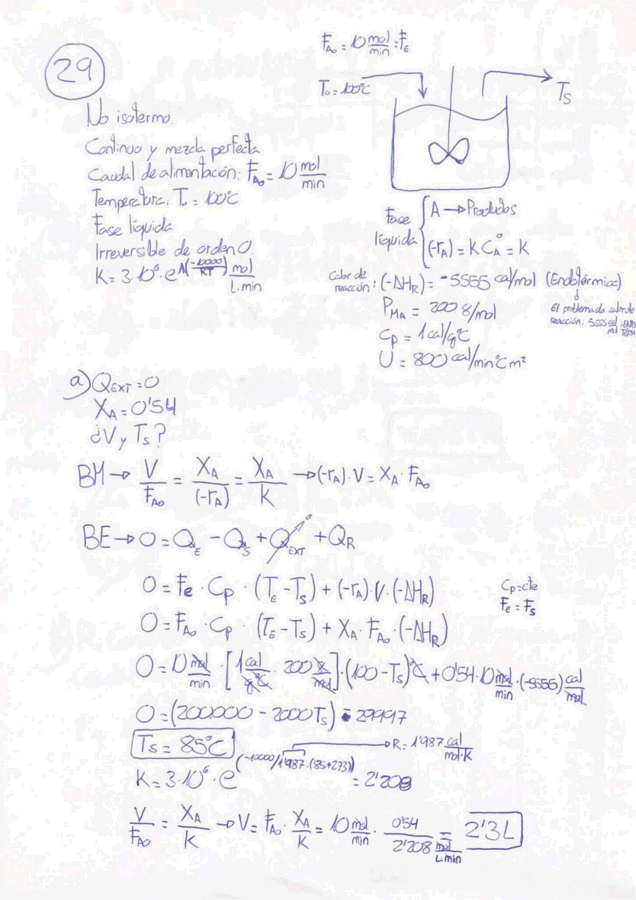 29
F_A0 = 10 mol/min = F_E
T_0 = 100°C
T_S
No isotermo.
Continuo y mezcla perfecta
Caudal de alimentación: F_A0 = 10 mol/min
Temperatura: T_0 = 100°C
Fase líquida
Irreversible de orden 0
K = 3·10^6·e^(-10000/RT) mol/L·min
Fase líquida { A → Productos
(-r_A) = K C_A^0 = K
Calor de reacción: (-ΔH_R) = -5555 cal/mol (Endotérmica)
↓
El problema da calor de reacción: 5555 cal/mol
P_MA = 200 g/mol
Cp = 1 cal/g°C
U = 800 cal/min°C m²
a) Q_EXT = 0
X_A = 0'54
¿V y T_S?
BM → V/F_A0 = X_A/(-r_A) = X_A/K → (-r_A)·V = X_A·F_A0
BE → 0 = Q_E - Q_S + Q_EXT^0 + Q_R
0 = F_e · Cp · (T_E - T_S) + (-r_A)·V·(-ΔH_R)
Cp = cte
F_E = F_S
0 = F_A0 · Cp · (T_E - T_S) + X_A · F_A0 · (-ΔH_R)
0 = 10 mol/min · [1 cal/g°C · 200 g/mol] · (100 - T_S)°C + 0'54 · 10 mol/min · (-5555) cal/mol
0 = (200000 - 2000 T_S) - 29997
T_S = 85°C
R = 1'987 cal/mol·K
K = 3·10^6 · e^(-10000/1'987·(85+273)) = 2'208
V/F_A0 = X_A/K → V = F_A0 · X_A/K = 10 mol/min · 0'54/2'208 mol/L·min = 2'3 L